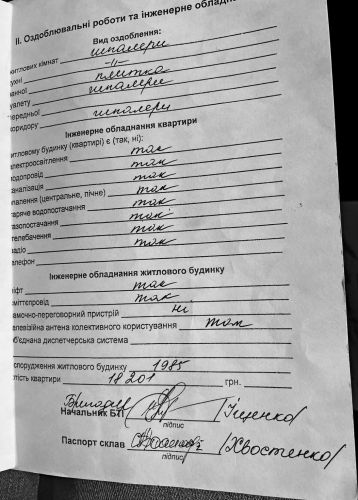 ІІ. Оздоблювальні роботи та інженерне обладна
Вид оздоблення:
житлових кімнат шпалери
ухні -//-
анної плитка
уалету шпалери
ередньої
оридору шпалери
Інженерне обладнання квартири
итловому будинку (квартирі) є (так, ні):
лектроосвітлення так
одопровід так
аналізація так
палення (центральне, пічне) так
аряче водопостачання так
азопостачання так
елебачення так
адіо так
елефон
Інженерне обладнання житлового будинку
іфт так
міттєпровід так
амочно-переговорний пристрій ні
елевізійна антена колективного користування так
б'єднана диспетчерська система
спорудження житлового будинку 1985
тість квартири 18201 грн.
Начальник БТІ /Іщенко/
підпис
Паспорт склав /Хвостенко/
підпис